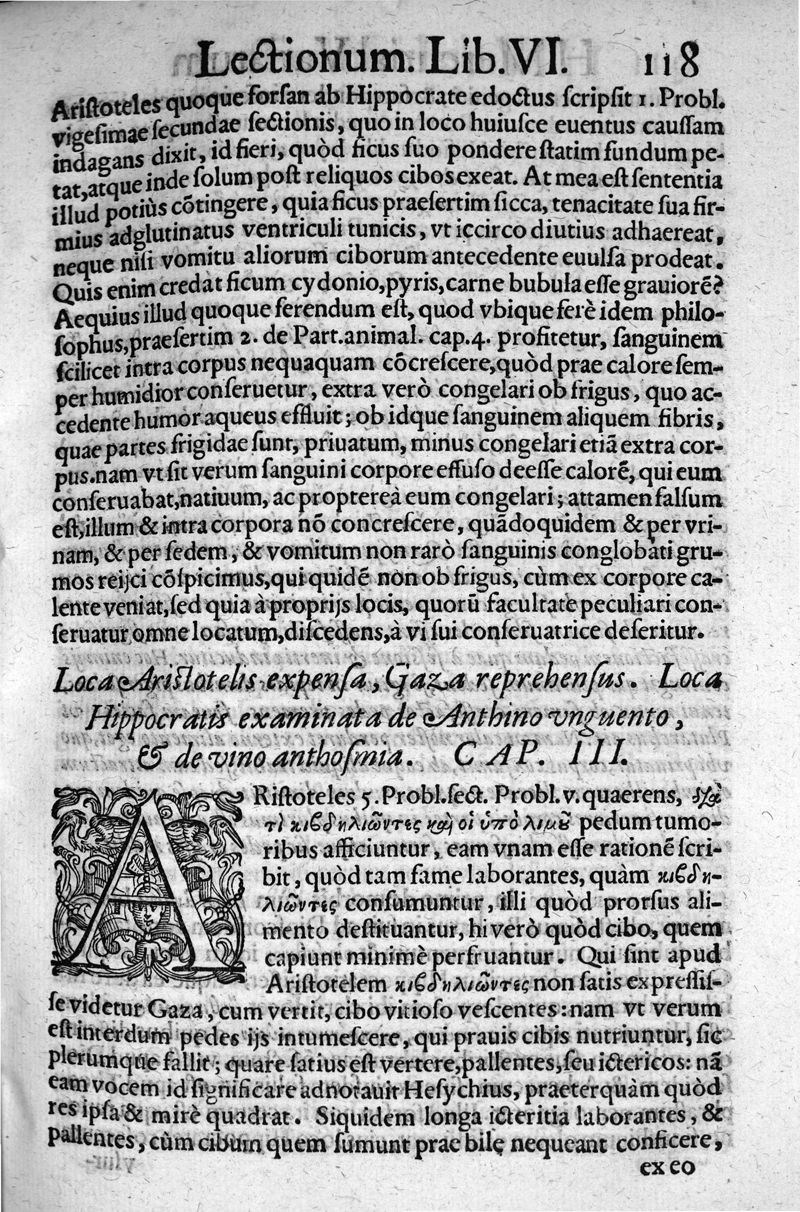 Lectionum. Lib. VI. 118
Aristoteles quoque forsan ab Hippocrate edoctus scripsit 1. Probl.
vigesimae secundae sectionis, quo in loco huiusce euentus caussam
indagans dixit, id fieri, quòd ficus suo pondere statim fundum pe-
tat, atque inde solum post reliquos cibos exeat. At mea est sententia
illud potiùs cõtingere, quia ficus praesertim sicca, tenacitate sua fir-
mius adglutinatus ventriculi tunicis, vt iccirco diutius adhaereat,
neque nisi vomitu aliorum ciborum antecedente euulsa prodeat.
Quis enim credat ficum cydonio, pyris, carne bubula esse grauiorẽ?
Aequius illud quoque ferendum est, quod vbique ferè idem philo-
sophus, praesertim 2. de Part. animal. cap. 4. profitetur, sanguinem
scilicet intra corpus nequaquam cõcrescere, quòd prae calore sem-
per humidior conseruetur, extra verò congelari ob frigus, quo ac-
cedente humor aqueus effluit; ob idque sanguinem aliquem fibris,
quae partes frigidae sunt, priuatum, minus congelari etiã extra cor-
pus. nam vt sit verum sanguini corpore effuso deesse calorẽ, qui eum
conseruabat, natiuum, ac proptereà eum congelari; attamen falsum
est, illum & intra corpora nõ concrescere, quãdoquidem & per vri-
nam, & per sedem, & vomitum non rarò sanguinis conglobati gru-
mos reijci cõspicimus, qui quidẽ non ob frigus, cùm ex corpore ca-
lente veniat, sed quia à proprijs locis, quorũ facultate peculiari con-
seruatur omne locatum, discedens, à vi sui conseruatrice deseritur.
Loca Aristotelis expensa, Gaza reprehensus. Loca
Hippocratis examinata de Anthino vnguento,
& de vino anthosmia. CAP. III.
ARistoteles 5. Probl. sect. Probl. v. quaerens, διὰ
τὶ κιβδηλιῶντες καὶ οἱ ὑπὸ λιμοῦ pedum tumo-
ribus afficiuntur, eam vnam esse rationẽ scri-
bit, quòd tam fame laborantes, quàm κιβδη-
λιῶντες consumuntur, illi quòd prorsus ali-
mento destituantur, hi verò quòd cibo, quem
capiunt minimè perfruantur. Qui sint apud
Aristotelem κιβδηλιῶντες non satis expressis-
se videtur Gaza, cum vertit, cibo vitioso vescentes: nam vt verum
est interdum pedes ijs intumescere, qui prauis cibis nutriuntur, sic
plerumque fallit; quare satius est vertere, pallentes, seu ictericos: nã
eam vocem id significare adnotauit Hesychius, praeterquàm quòd
res ipsa & mirè quadrat. Siquidem longa icteritia laborantes, &
pallentes, cùm cibum quem sumunt prae bilę nequeant conficere,
ex eo